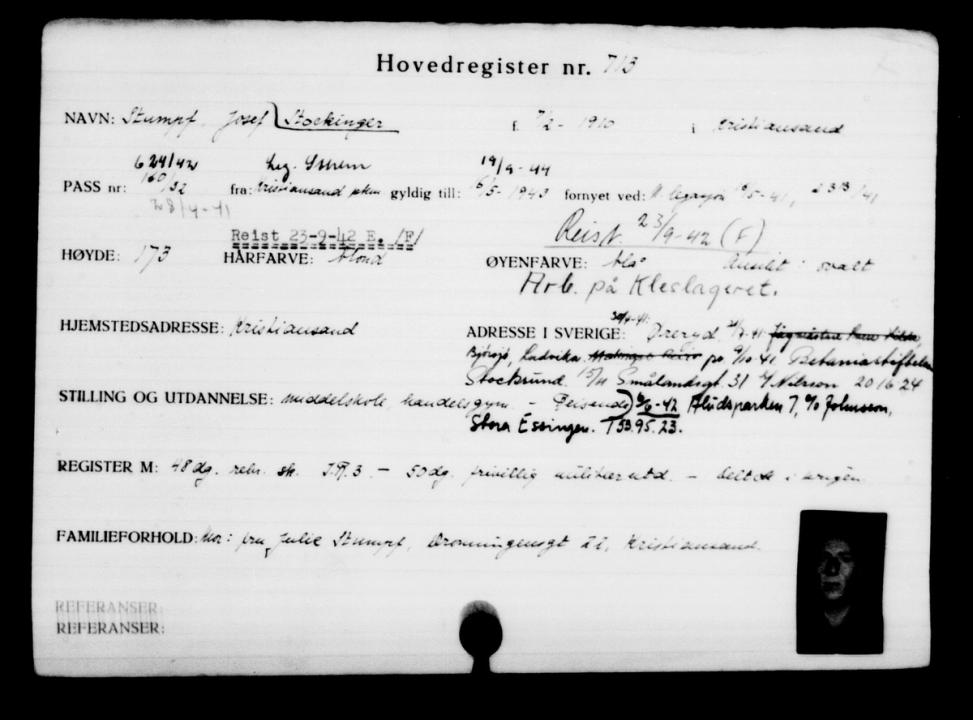 Hovedregister nr. 713
NAVN: Stumpf, Josef Stockinger f. 7/2 - 1910 i Kristiansand
624/42 Leg. Sthlm 19/9 - 44
PASS nr: 160/32 fra: Kristiansand gyldig till: 16/5 - 1943 fornyet ved: 16/5 - 41,
28/4 - 41
Reist 23-9-42 E. /F/ Reist 23/9-42 (F)
HØYDE: 173 HÅRFARVE: blond ØYENFARVE: blå Ansikt: ovalt
Arb. på Kleslageret.
HJEMSTEDSADRESSE: Kristiansand ADRESSE I SVERIGE: Öreryd
Björsjö, Ludvika. pr 9/10 41 Betaniastiftelsen
Stocksund. 15/11 Smålandsgt. 31 c/o Nilsson 20 16 24
STILLING OG UTDANNELSE: middelskole, handelsgym. - Reisende 6/6-42 Flúdsparken 7, c/o Johnsson,
Stora Essingen. T 53.95.23.
REGISTER M: 48 dg. rekr. sk. I.R. 3 - 50 dg. frivillig militærutd. - deltok i krigen
FAMILIEFORHOLD: Mor: fru Julie Stumpf, Dronningensgt 21, Kristiansand.
REFERANSER:
REFERANSER: